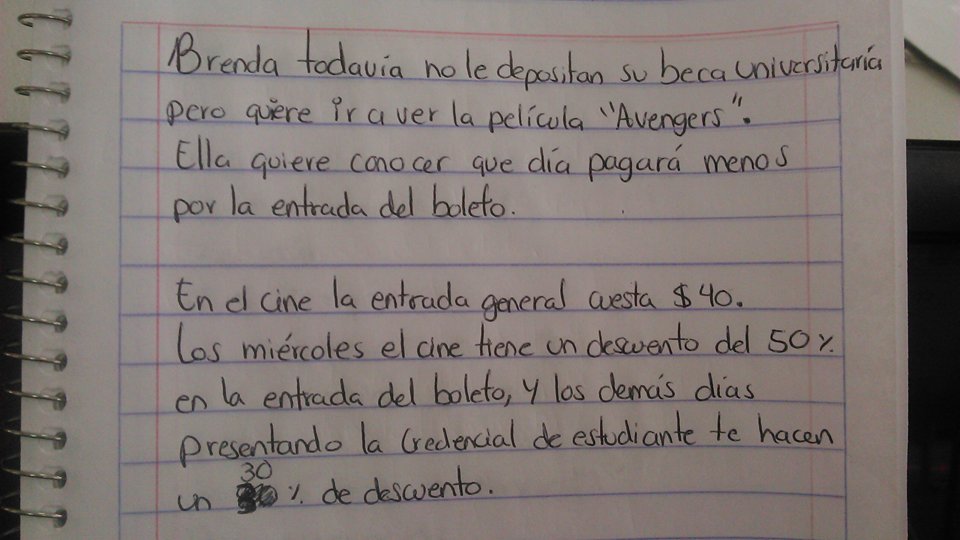 Brenda todavía no le depositan su beca universitaría
pero quiere ir a ver la película "Avengers".
Ella quiere conocer que día pagará menos
por la entrada del boleto.
En el cine la entrada general cuesta $40.
Los miércoles el cine tiene un descuento del 50%
en la entrada del boleto, y los demás días
presentando la credencial de estudiante te hacen
un 30 % de descuento.